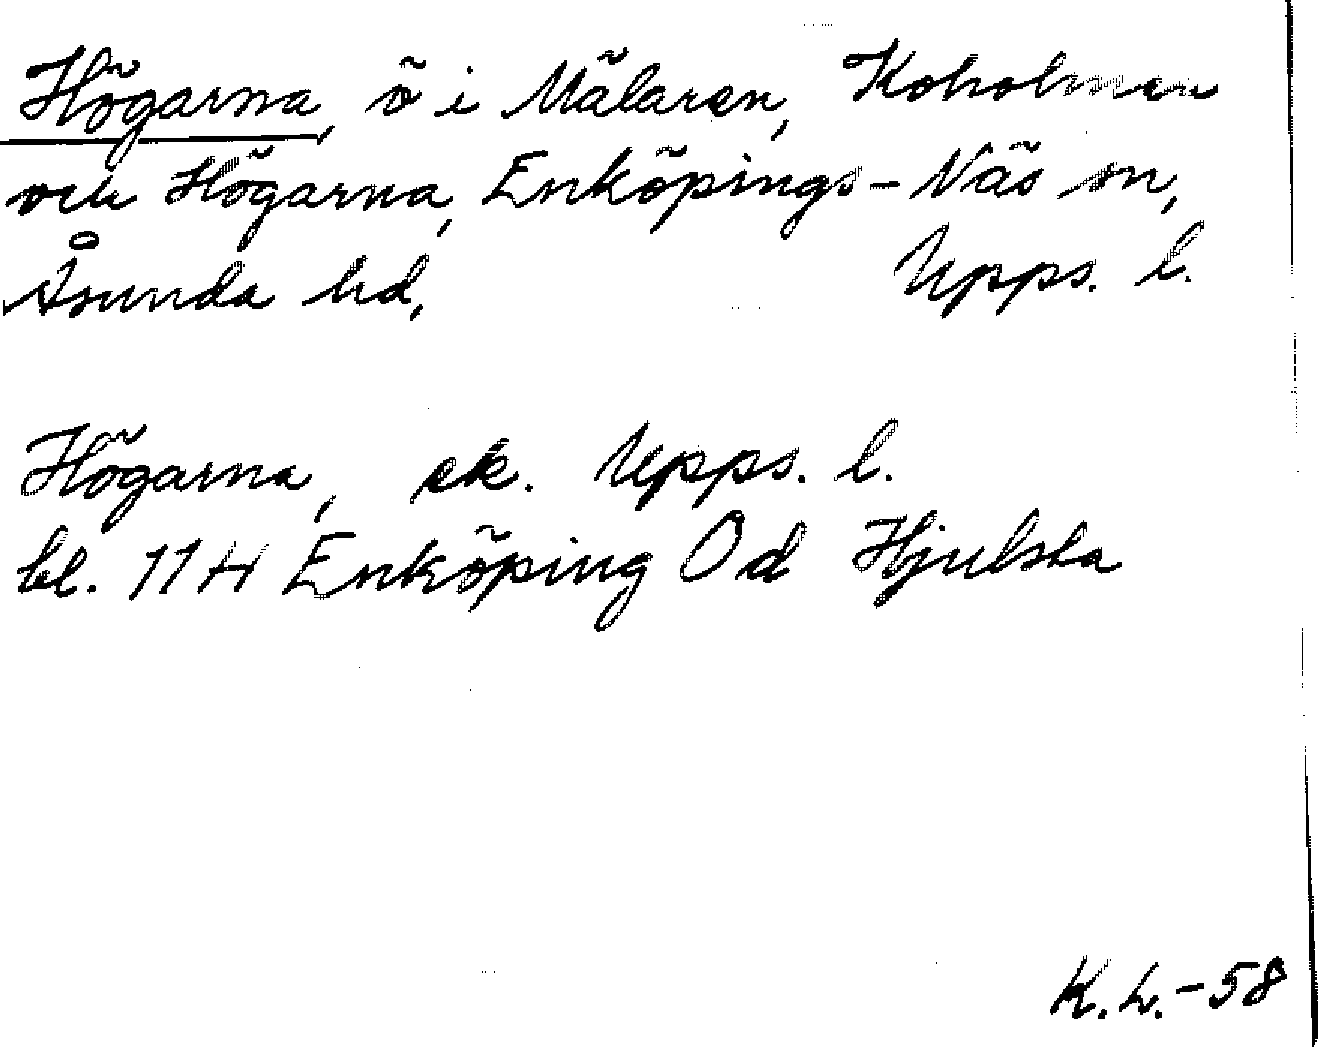 Högarna, ö i Mälaren, Koholmen
och Högarna, Enköpings-Näs sn,
Åsunda hd, Upps. l.
Högarna, ek. Upps. l.
bl. 11 H Enköping Od Hjulsta
K.L.-58